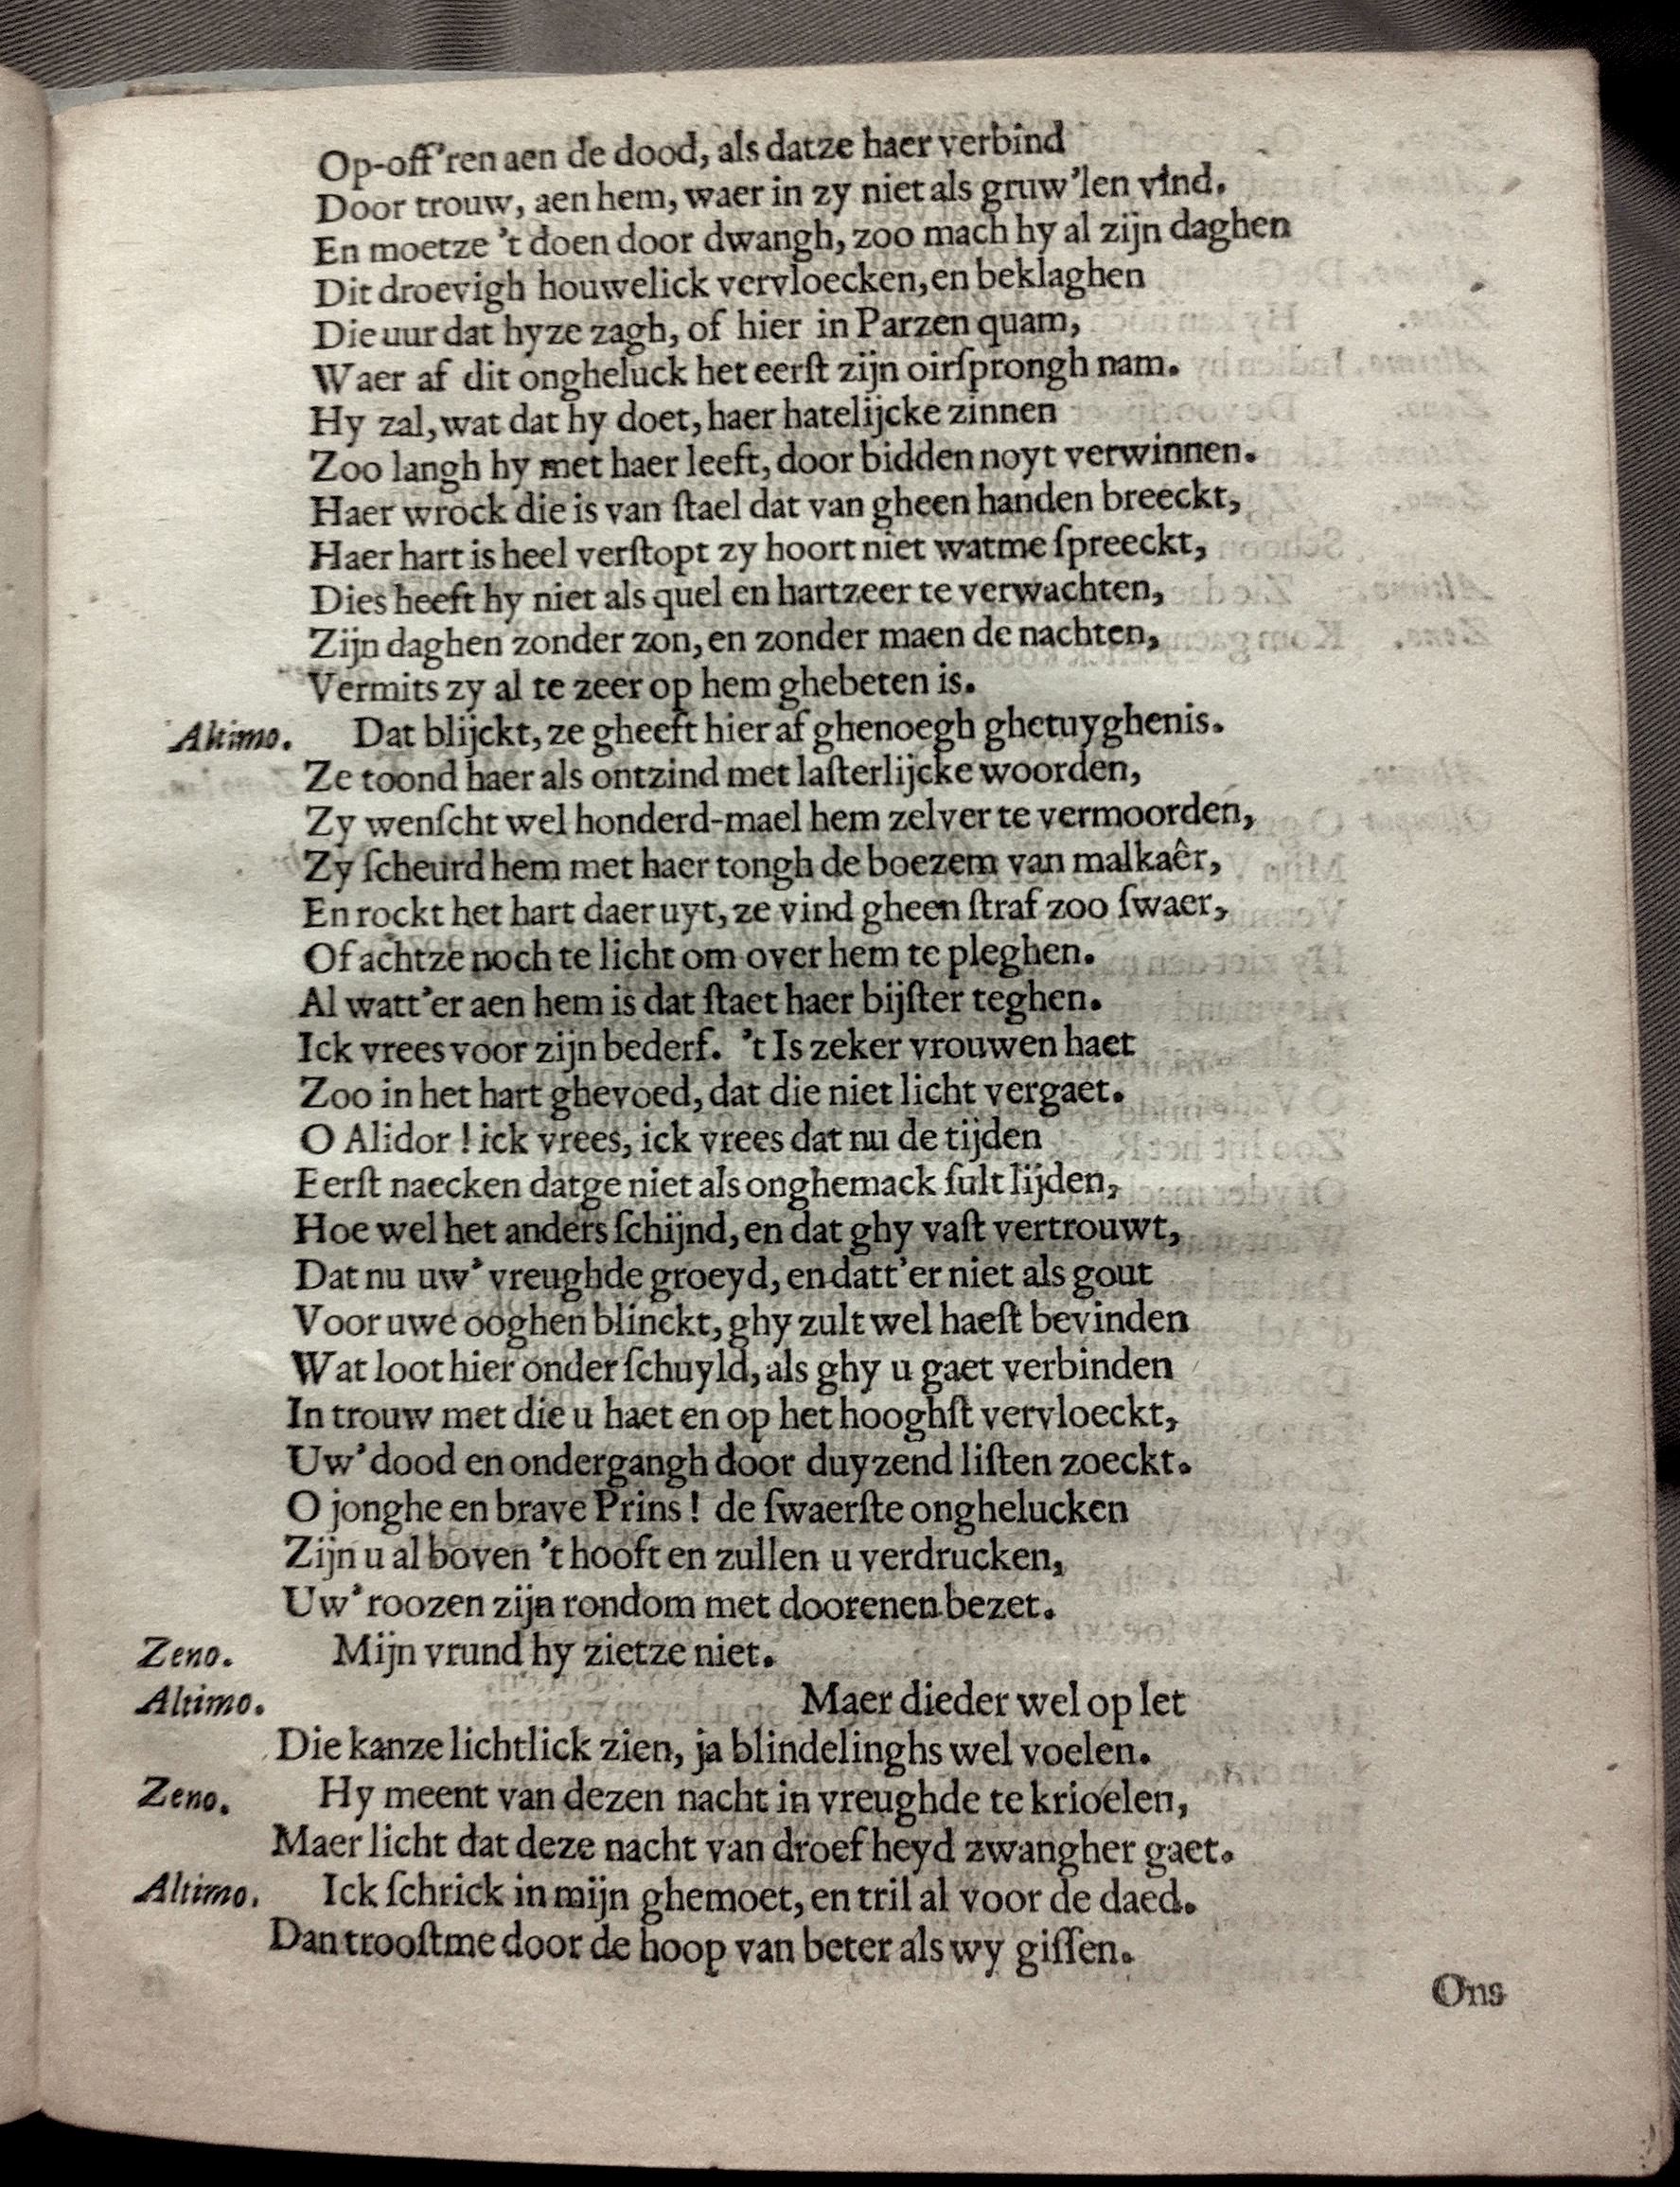 Op-off'ren aen de dood, als datze haer verbind
Door trouw, aen hem, waer in zy niet als gruw'len vind.
En moetze 't doen door dwangh, zoo mach hy al zijn daghen
Dit droevigh houwelick vervloecken, en beklaghen
Die uur dat hyze zagh, of hier in Parzen quam,
Waer af dit ongheluck het eerſt zijn oirſprongh nam.
Hy zal, wat dat hy doet, haer hatelijcke zinnen
Zoo langh hy met haer leeft, door bidden noyt verwinnen.
Haer wrock die is van ſtael dat van gheen handen breeckt,
Haer hart is heel verſtopt zy hoort niet watme ſpreeckt,
Dies heeft hy niet als quel en hartzeer te verwachten,
Zijn daghen zonder zon, en zonder maen de nachten,
Vermits zy al te zeer op hem ghebeten is.
Altimo. Dat blijckt, ze gheeft hier af ghenoegh ghetuyghenis.
Ze toond haer als ontzind met laſterlijcke woorden,
Zy wenſcht wel honderd-mael hem zelver te vermoorden,
Zy ſcheurd hem met haer tongh de boezem van malkaêr,
En rockt het hart daer uyt, ze vind gheen ſtraf zoo ſwaer,
Of achtze noch te licht om over hem te pleghen.
Al watt'er aen hem is dat ſtaet haer bijſter teghen.
Ick vrees voor zijn bederf. 't Is zeker vrouwen haet
Zoo in het hart ghevoed, dat die niet licht vergaet.
O Alidor ! ick vrees, ick vrees dat nu de tijden
Eerſt naecken datge niet als onghemack ſult lijden,
Hoe wel het anders ſchijnd, en dat ghy vaſt vertrouwt,
Dat nu uw' vreughde groeyd, en datt'er niet als gout
Voor uwe ooghen blinckt, ghy zult wel haeſt bevinden
Wat loot hier onder ſchuyld, als ghy u gaet verbinden
In trouw met die u haet en op het hooghſt vervloeckt,
Uw' dood en ondergangh door duyzend liſten zoeckt.
O jonghe en brave Prins ! de ſwaerſte onghelucken
Zijn u al boven 't hooft en zullen u verdrucken,
Uw' roozen zijn rondom met doorenen bezet.
Zeno. Mijn vrund hy zietze niet.
Altimo. Maer dieder wel op let
Die kanze lichtlick zien, ja blindelinghs wel voelen.
Zeno. Hy meent van dezen nacht in vreughde te krioelen,
Maer licht dat deze nacht van droefheyd zwangher gaet.
Altimo. Ick ſchrick in mijn ghemoet, en tril al voor de daed.
Dan trooſtme door de hoop van beter als wy giſſen.
Ons